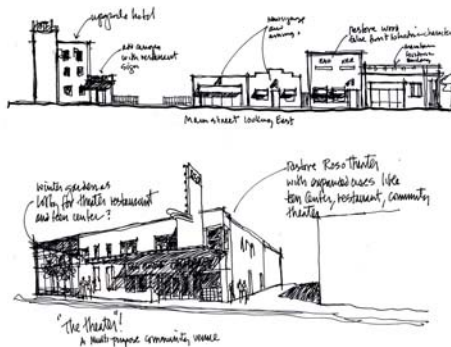 Hotel
upgrade hotel
add canopy
with restaurant
sign
New signage
and
awnings
Restore wood
false front historic character
Main street looking East
winter garden as
lobby for theater restaurant
and teen center?
Restore Roso theater
with expanded uses like
teen center, restaurant, community
theater
"The theater"!
A Multi-purpose community venue